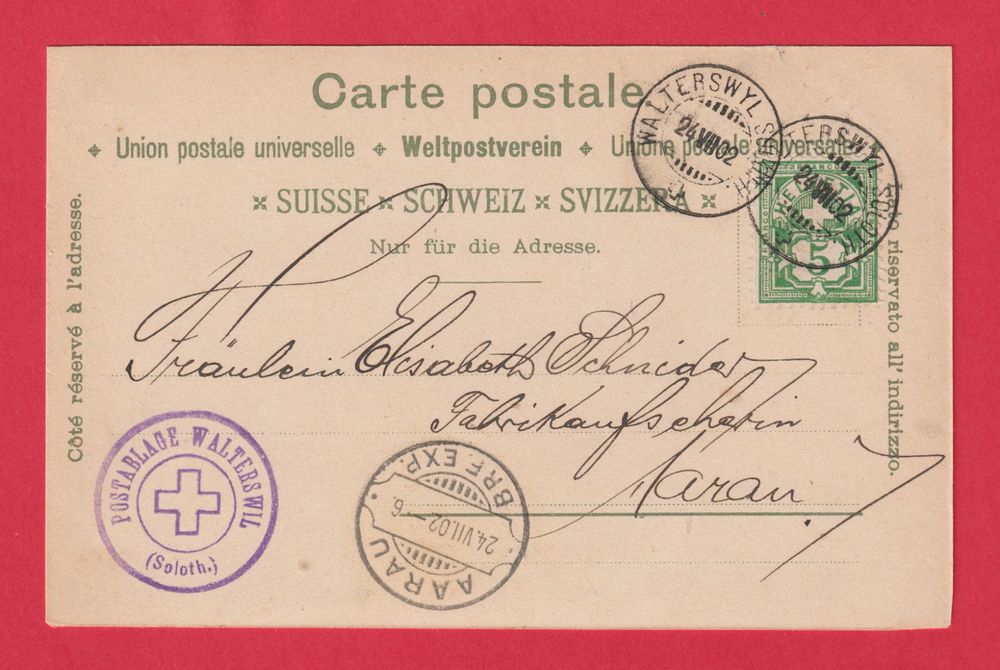 Carte postale
Union postale universelle Weltpostverein Unione postale universale
SUISSE SCHWEIZ SVIZZERA
Nur für die Adresse.
Côté réservé à l'adresse.
Lato riservato all' indirizzo.
WALTERSWYL SOLOTH.
24.VII.02
WALTERSWYL SOLOTH.
24.VII.02
FRANCO
5
Fräulein Elisabeth Schnider
Fabrikaufseherin
Aarau
POSTABLAGE WALTERSWIL
(Soloth.)
AARAU
24.VII.02–6
BRF. EXP.